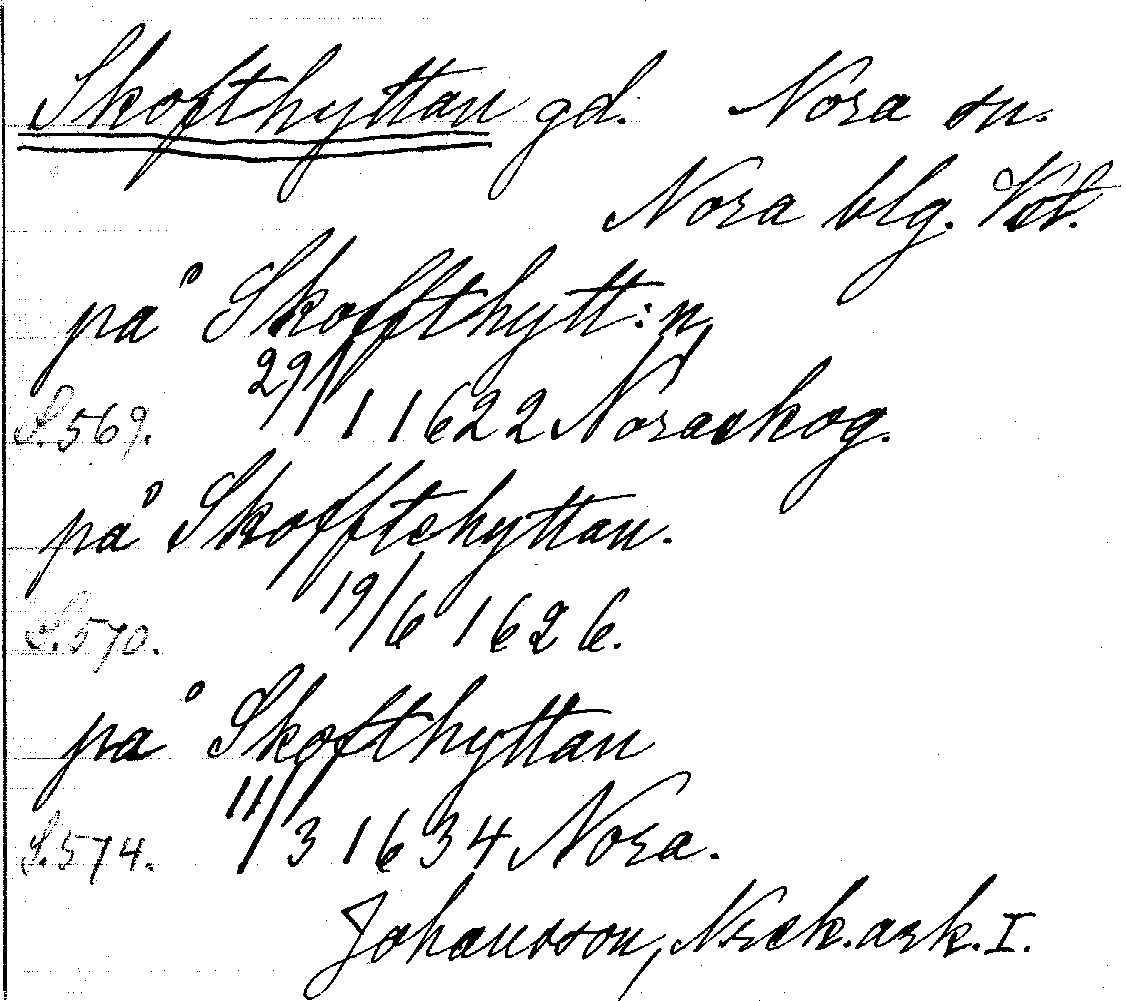 Skofthyttan gd. Nora sn.
Nora blg. Vstl.
på Skoffthytt:n,
S. 569. 29/11 1622 Noraskog.
på Skofftehyttan.
S. 570. 19/6 1626.
på Skofthyttan
S. 574. 11/3 1634 Nora.
Johansson, Norask. ark. I.